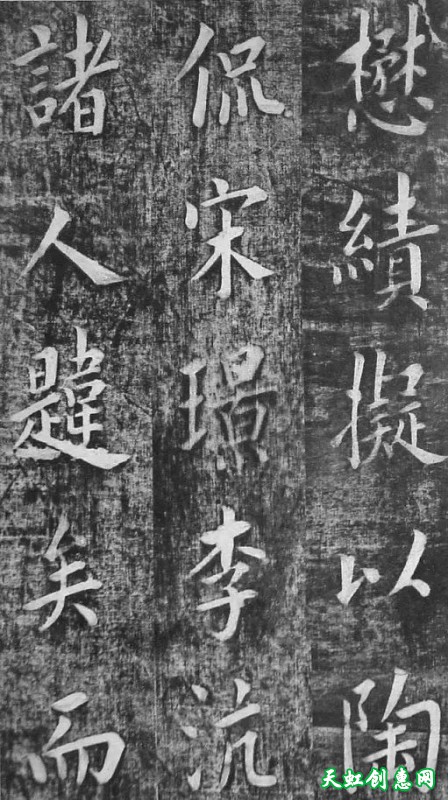 懋績擬以陶
侃宋璟李沆
諸人韙矣而
天虹创惠网